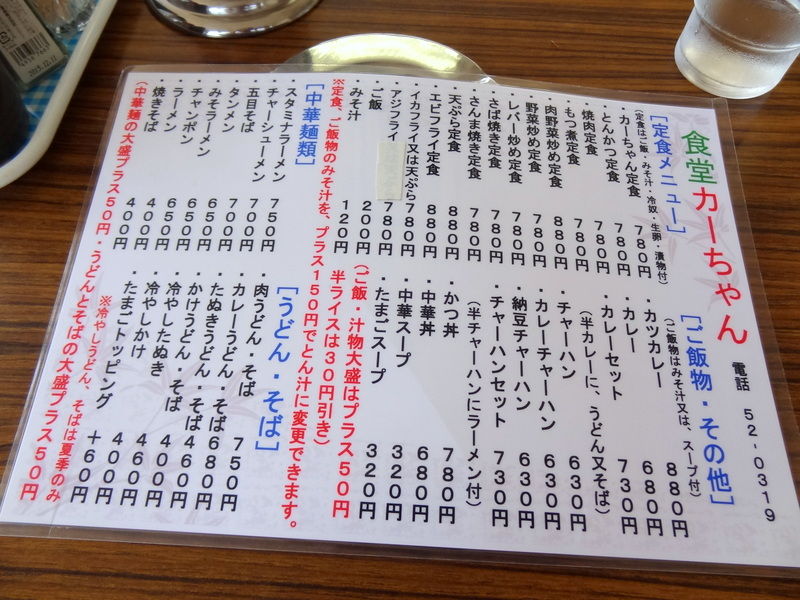 食堂 カーちゃん 電話 52-0319
[定食メニュー]
(定食はご飯・みそ汁・冷奴・生卵・漬物付)
・カーちゃん定食 780円
・とんかつ定食 780円
・焼肉定食 780円
・もつ煮定食 780円
・肉野菜炒め定食 880円
・野菜炒め定食 780円
・レバー炒め定食 780円
・さば焼き定食 780円
・さんま焼き定食 780円
・天ぷら定食 880円
・エビフライ定食 880円
・イカフライ又は天ぷら 780円
・アジフライ 780円
・ご飯 200円
・みそ汁 120円
[ご飯物・その他]
(ご飯物はみそ汁又は、スープ付)
・カツカレー 880円
・カレー 680円
・カレーセット 730円
(半カレーに、うどん又そば)
・チャーハン 630円
・カレーチャーハン 630円
・納豆チャーハン 630円
・チャーハンセット 730円
(半チャーハンにラーメン付)
・かつ丼 780円
・中華丼 680円
・中華スープ 320円
・たまごスープ 320円
(ご飯・汁物大盛はプラス50円
半ライスは30円引き)
※定食、ご飯物のみそ汁を、プラス150円でとん汁に変更できます。
[中華麺類]
・スタミナラーメン 750円
・チャーシューメン 700円
・五目そば 700円
・タンメン 650円
・みそラーメン 650円
・チャンポン 650円
・ラーメン 400円
・焼きそば 400円
[うどん・そば]
・肉うどん・そば 750円
・カレーうどん・そば 680円
・たぬきうどん・そば 460円
・かけうどん・そば 400円
・冷やしたぬき 460円
・冷やしかけ 400円
・たまごトッピング +60円
※冷やしうどん、そばは夏季のみ
(中華麺の大盛プラス50円・うどんとそばの大盛プラス50円
2015.12.11